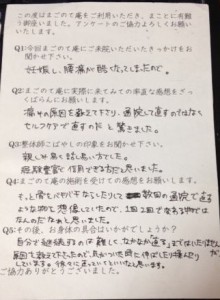 この度はまごのて庵をご利用いただき、まことに有難
う御座いました。アンケートのご協力よろしくお願い
いたします。
Q1:今回まごのて庵にご来院いただいたきっかけをお
聞かせ下さい。
妊娠し、腰痛が酷くなってしまったので。
Q2:まごのて庵に実際に来てみての率直な感想をざっ
くばらんにお願いします。
痛みの原因を教えて下さり、通院して直すのではなく
セルフケアで直すの に驚きました。
Q3:整体師こばやしの印象をお聞かせ下さい。
親しみ易く話し易い方でした。
経験豊富で信頼できる方だと思いました。
Q4:まごのて庵の施術を受けての感想をお願いします。
もっと骨をバキバキならしたりして 数回の通院で直す
ような物を想像していたので、1回2回で直る物では
ないのだなぁと思いました。
Q5:その後、お身体の具合はいかがでしょうか?
自分で継続するのは難しく、なかなか直るまではいきませんが
原因を教えて下さったので、気がついた時に伸ばしたり
しています。徐々に直っていくといいなと思います。
ご協力ありがとうございました。